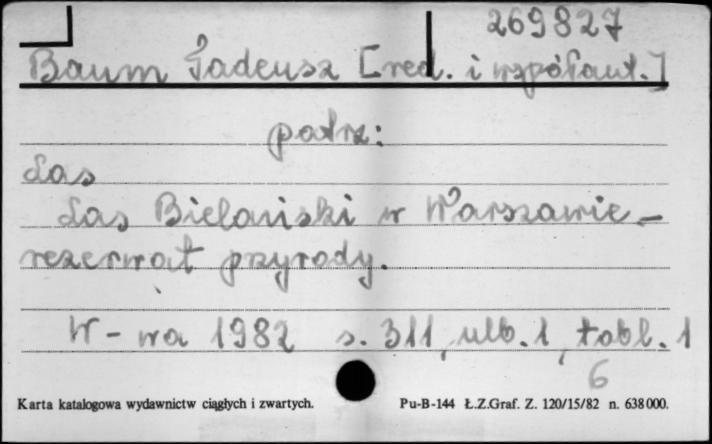 269827
Baum Tadeusz [red. i współaut.]
patrz:
Las
Las Bielański w Warszawie -
rezerwat przyrody.
W-wa 1982 s. 311, ulb. 1, tabl. 1
6
Karta katalogowa wydawnictw ciągłych i zwartych. Pu-B-144 Ł.Z.Graf. Z. 120/15/82 n. 638000.